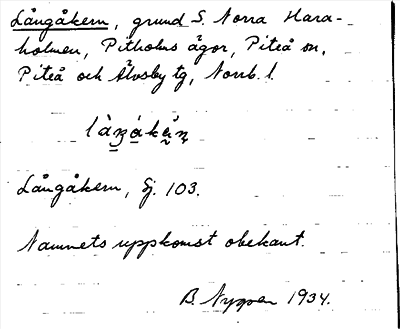 Långåkern, grund S. Norra Hara-
holmen, Pitholms ägor, Piteå sn,
Piteå och Älvsby tg, Norrb. l.
Långåkern, Sj. 103.
Namnets uppkomst obekant.
B. 1934.